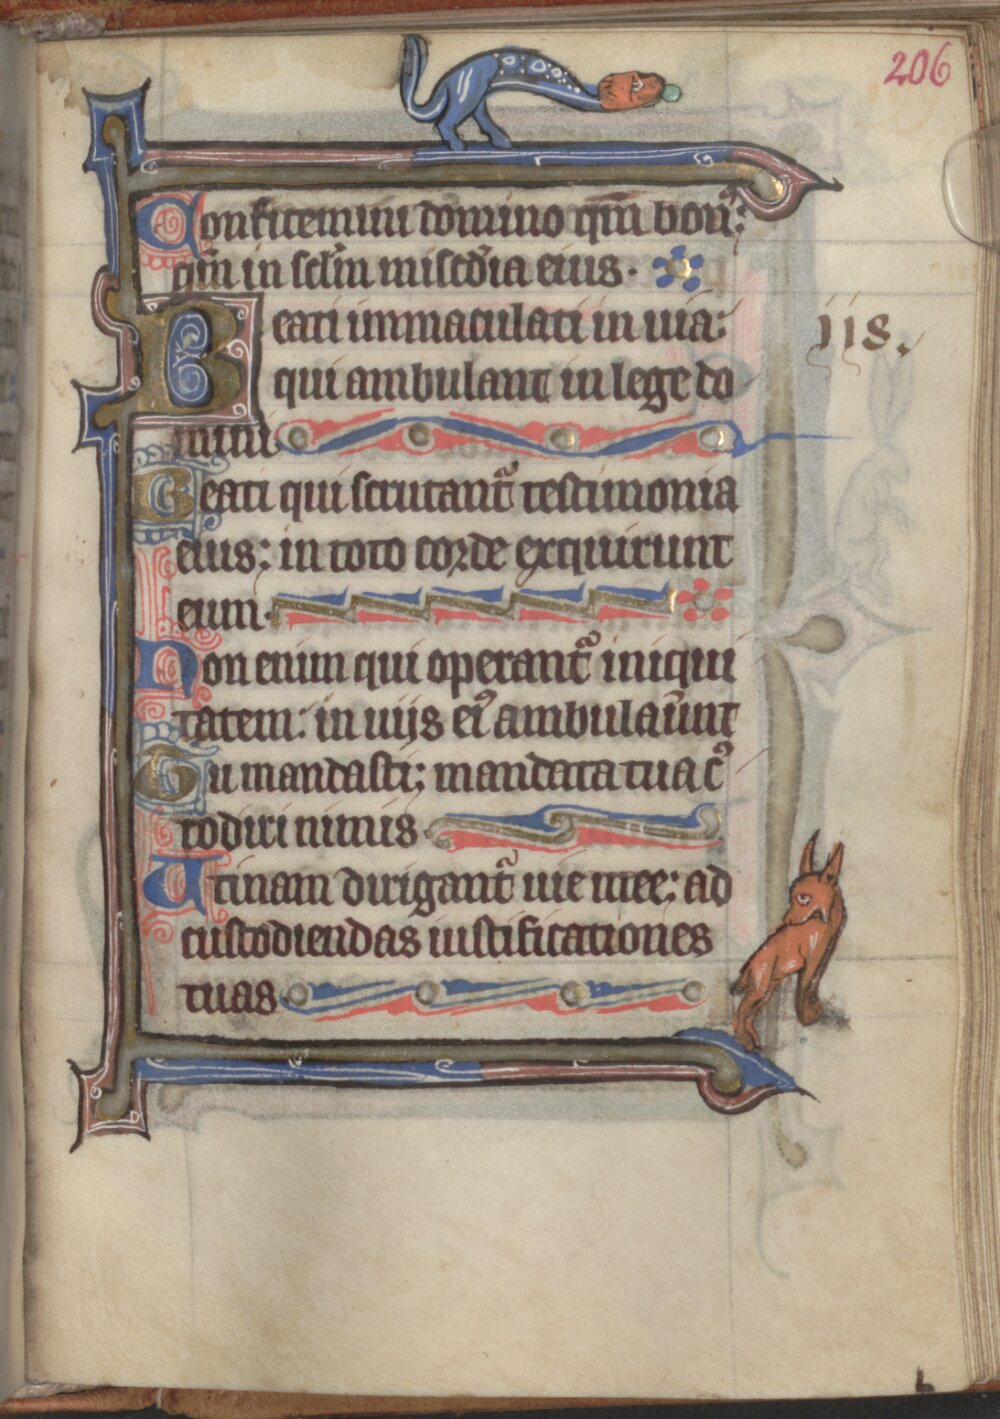 206
Confitemini domino qm̄ bon⁹:
qm̄ in sclm̄ misc̄dia eius.
Beati immaculati in uia:
118.
qui ambulant in lege do
mini
Beati qui scrutant᷑ testimonia
eius: in toto corde exquirunt
eum.
Non enim qui operant᷑ iniqui
tatem: in uijs ei⁹ ambulauer̄nt
Tu mandasti: mandata tua c⁹
todiri nimis
Utinam dirigant᷑ uie mee: ad
custodiendas iustificationes
tuas